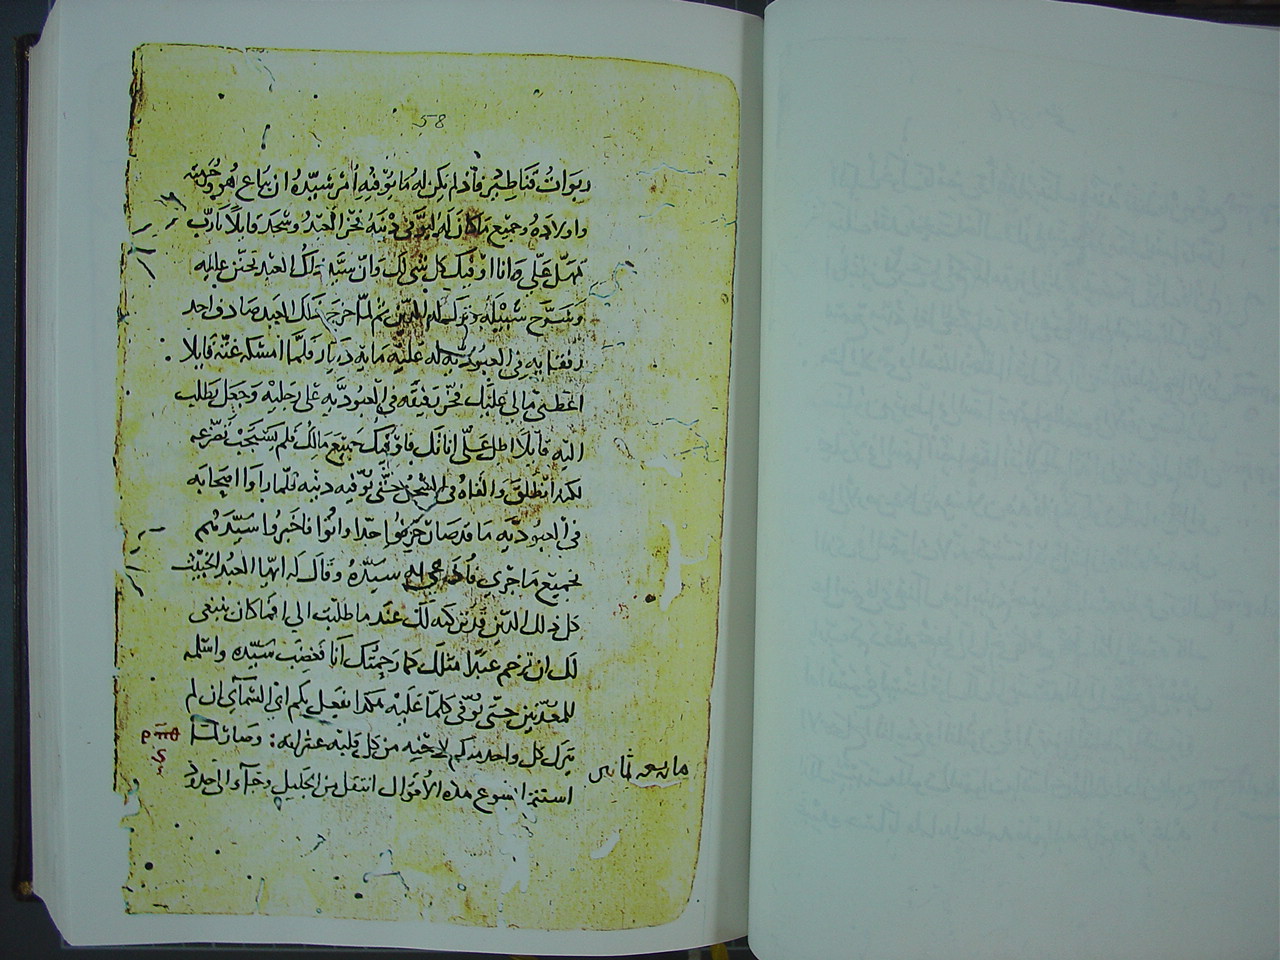 58
ربوات قناطير فاذ لم يكن له ما يوفيه امر سيده ان يباع هو وزوجته
واولاده وجميع ما كان له ليوفي دينه فخر العبد وسجد قايلا يا رب
تمهل علي وانا اوفيك كل شي لك وان سيد ذلك العبد تحنن عليه
وسرح سبيله وترك له الدين ثم لما خرج ذلك العبد صادف واحد
رفقايه في العبوديه له عليه مايه دينار فلما امسكه عنه قايلا
اعطني مالي عليك فخر رفيقه في العبوديه على رجليه وجعل يطلب
اليه قايلا اطل علي اناتك فاوفيك جميع مالك فلم يستجيب تضرعه
لكنه انطلق والقاه في السجن حتى يوفيه دينه فلما راوا اصحابه
في العبوديه ما قد صار حزنوا جدا واتوا فاخبروا سيدهم
بجميع ما جرى سيده وقال له ايها العبد الخبيث
كل ذلك الدين قد تركته لك عند ما طلبت الي افما كان ينبغي
لك ان ترحم عبدا مثلك كما رحمتك انا فغضب سيده واسلمه
للمعذبين حتى يوفي كلما عليه هكذا يفعل بكم ابي السمآي ان لم
يترك كل واحد منكم لاخيه من كل قلبه عثراته: وصار لما
استتم ايسوع هذه الاقوال انتقل من الجليل وجآء الى حدود